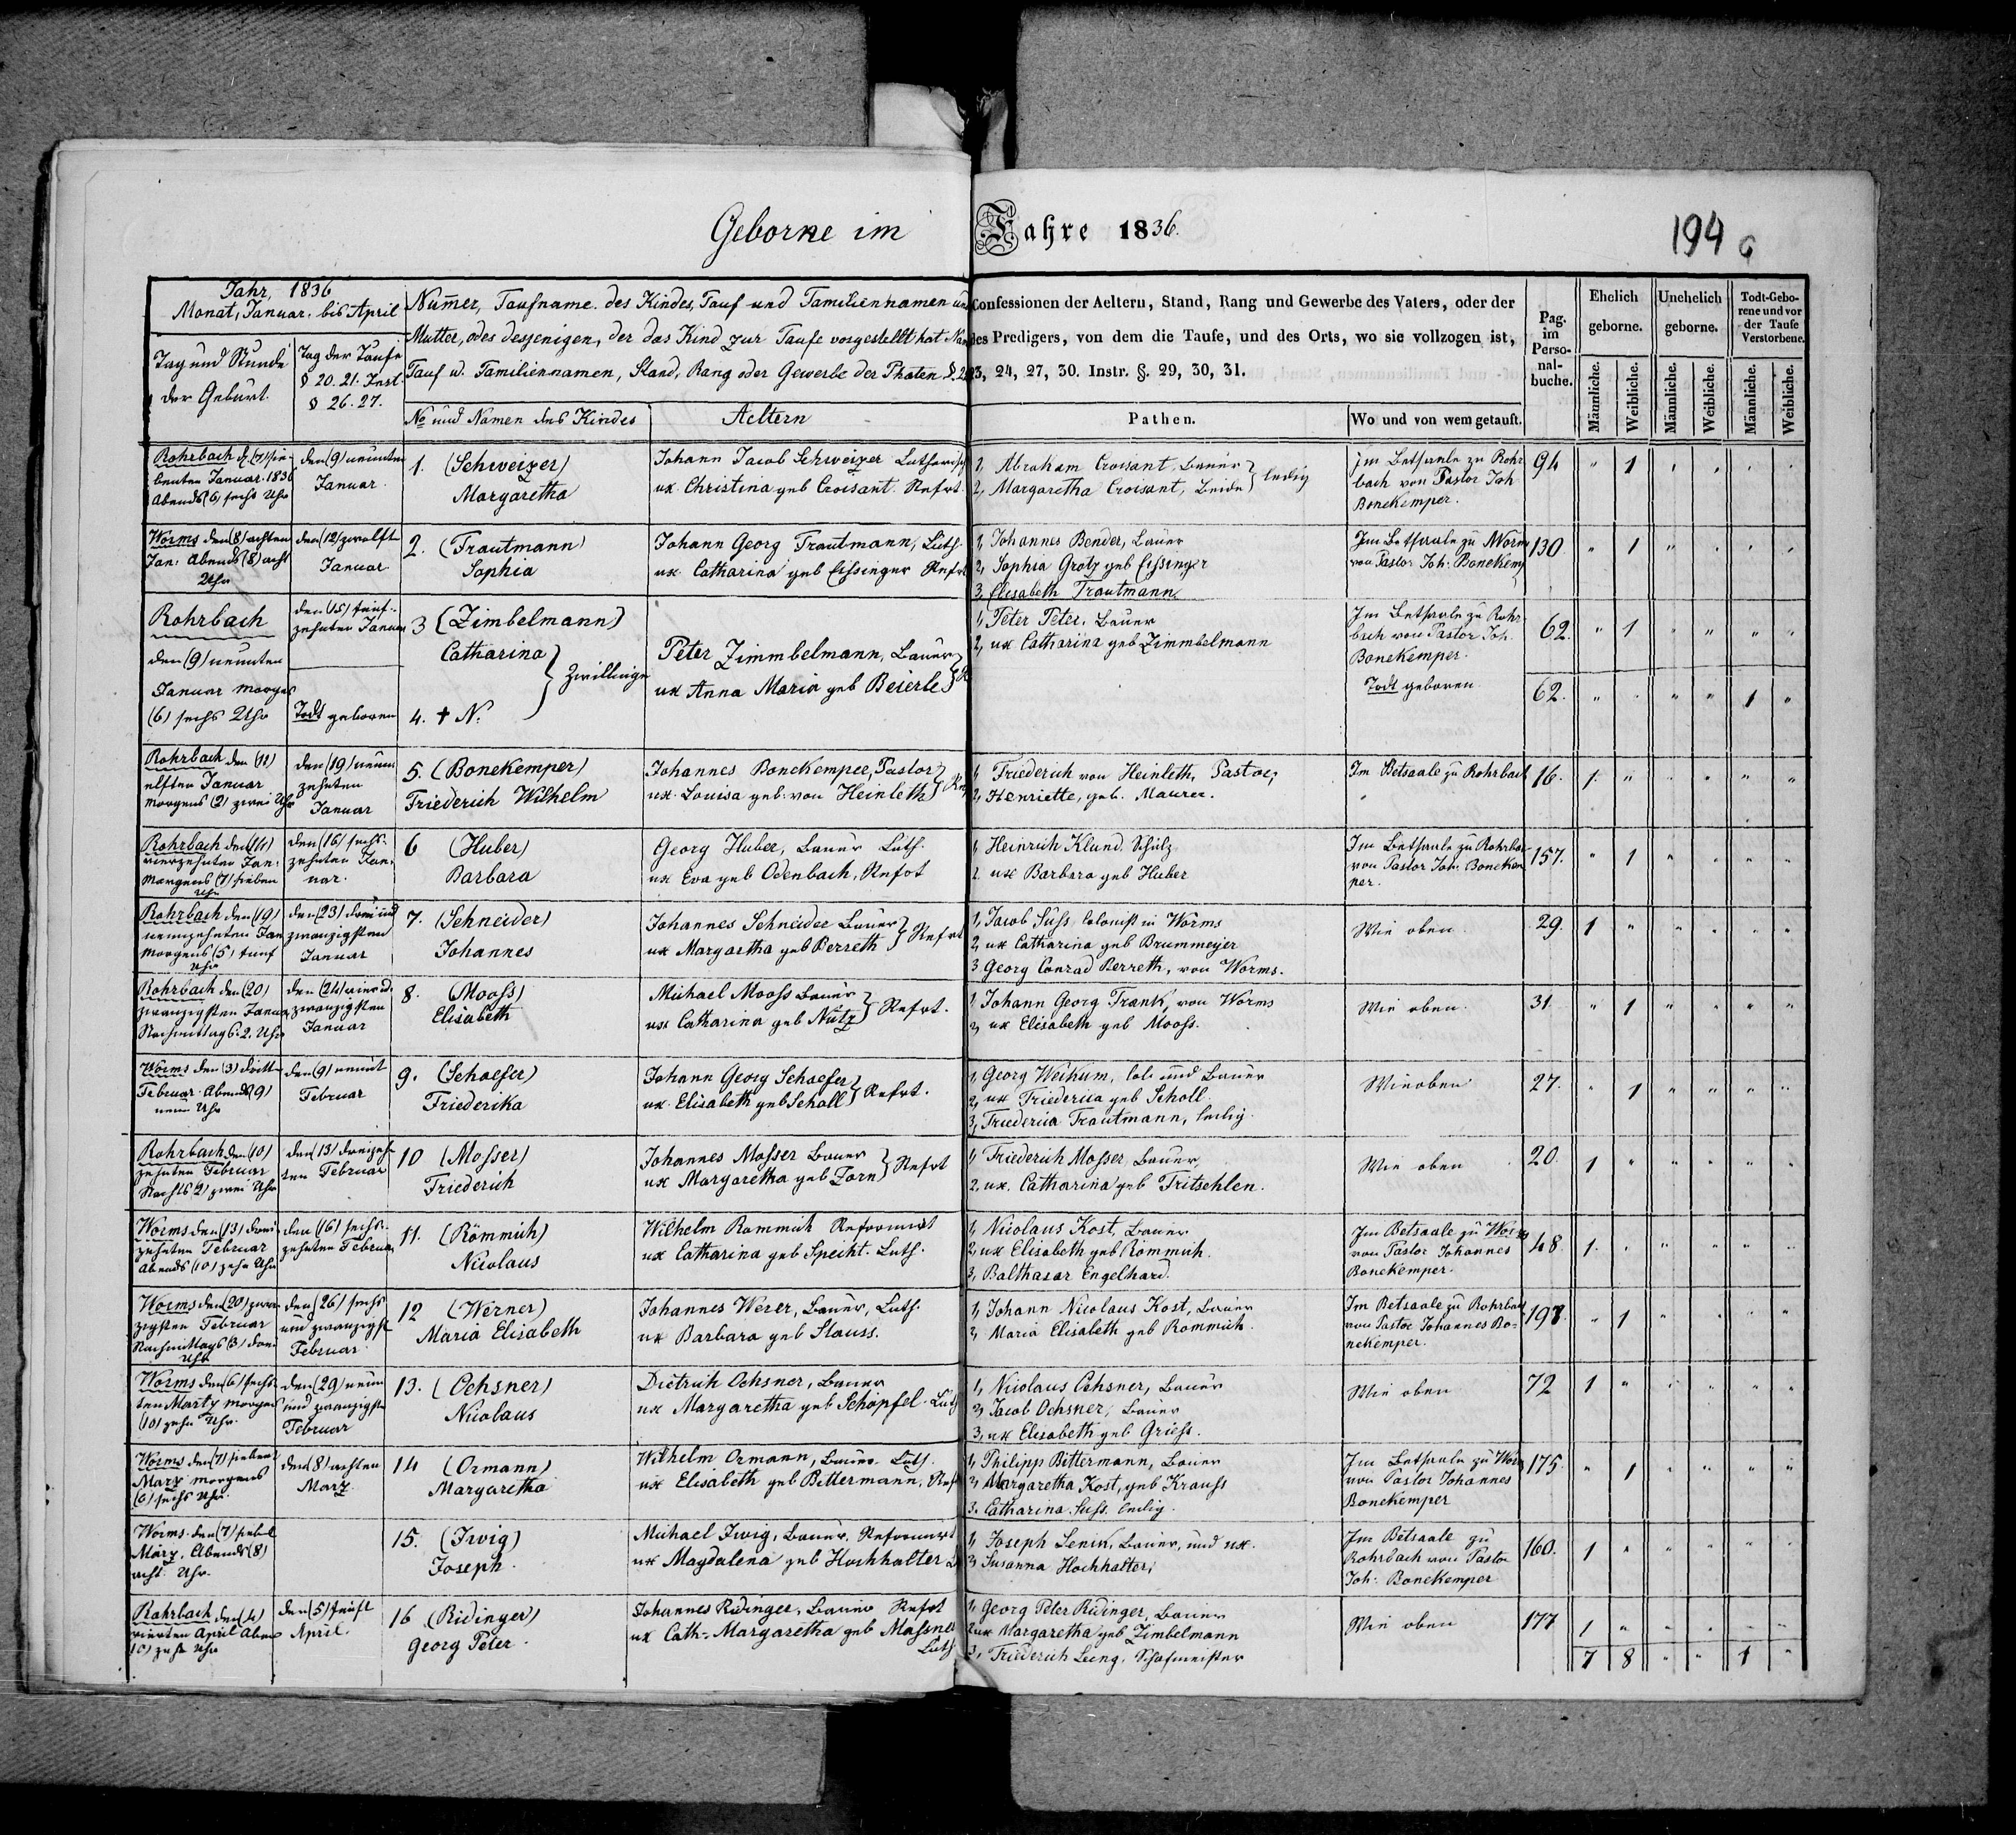 Geborne im Jahre 1836.
194
6
Jahr, 1836
Monat, Januar bis April
Tag und Stunde
der Geburt.
Tag der Taufe
§ 20. 21. Inst.
§ 26. 27.
Nummer, Taufname des Kindes, Tauf und Familiennamen und Confessionen der Aeltern, Stand, Rang und Gewerbe des Vaters, oder der
Mutter, oder desjenigen, der das Kind zur Taufe vorgestellt hat des Predigers, von dem die Taufe, und des Orts, wo sie vollzogen ist,
Tauf u. Familiennamen, Stand, Rang oder Gewerbe der Phaten 3, 24, 27, 30. Instr. §. 29, 30, 31.
No und Namen des Kindes
Aeltern
Pathen.
Wo und von wem getauft.
Pag.
im
Perso-
nal-
buche.
Ehelich
geborne.
Unehelich
geborne.
Todt-Gebo-
rene und vor
der Taufe
Verstorbene.
Männliche.
Weibliche.
Männliche.
Weibliche.
Männliche.
Weibliche.
Rohrbach d. (7) sie-
benten Januar 1836
Abends (6) sechs Uhr
den (9) neunten
Januar.
1. (Schweizer)
Margaretha
Johann Jacob Schweizer Lutherisch
ux. Christina geb Croisant. Refrt.
1, Abraham Croisant, Bauer
2, Margaretha Croisant, Beide } ledig
im Betsaale zu Rohr
bach von Pastor Joh
Bonekemper.
94 " 1 " " " "
Worms den (8) achten
Jan: Abends (8) acht
Uhr
den (12) zwölften
Januar
2. (Trautmann)
Sophia
Johann Georg Trautmann, Luth.
ux. Catharina geb Eissinger Refrt
1, Johannes Bender, Bauer
2, Sophia Grotz geb Eissinger
3, Elisabeth Trautmann
Im Betsaale zu Worms
von Pastor Joh: Bonekemp
130 " 1 " " " "
Rohrbach
den (9) neunten
Januar morges
(6) sechs Uhr
den (15) fünf-
zehnten Januar
3 (Zimbelmann)
Catharina
} Zwillinge
Todt geboren
4. † N.
Peter Zimmbelmann, Bauer
ux Anna Maria geb Beierle }
1, Peter Peter. Bauer
2, ux Catharina geb Zimmbelmann
Im Betsaale zu Rohr-
bach von Pastor Joh.
Bonekemper.
62. " 1 " " " "
Todt geboren
62. " " " " 1 "
Rohrbach den (11)
elften Januar
morgens (2) zwei Uhr
den (19) neun
zehnten
Januar
5. (Bonekemper)
Friederich Wilhelm
Johannes Bonekemper, Pastor
ux. Louisa geb. von Heinleth }
1, Friederich von Heinleth, Pastor,
2, Henriette, geb. Maurer.
Im Betsaale zu Rohrbach
16. 1. " " " " "
Rohrbach den (14)
vierzehnten Jan:
Morgens (7) sieben
Uhr
den (16) sechs-
zehnten Jan-
uar.
6 (Huber)
Barbara
Georg Huber, Bauer Luth.
ux Eva geb Odenbach, Refrt
1, Heinrich Klund Schulz
2. ux Barbara geb Huber
Im Betsaale zu Rohrbac
von Pastor Joh. Bonekem
per.
157. " 1 " " " "
Rohrbach den (19)
neunzehnten Jan
Morgens (5) fünf
Uhr
den (23) drei und
zwanzigsten
Januar
7. (Schneider)
Johannes
Johannes Schneider Bauer
ux Margaretha geb Berreth } Refrt
1, Jacob Süss, Colonist in Worms
2, ux Catharina geb Brummeyer
3. Georg Conrad Berreth, von Worms.
Wie oben
29. 1 " " " " "
Rohrbach den (20)
zwanzigsten Januar
Nachmittags 2. Uhr
den (24) vier u.
zwanzigsten
Januar
8. (Mooss)
Elisabeth
Michael Mooss Bauer
ux Catharina geb Nutz } Refrt.
1, Johann Georg Frank, von Worms
2, ux Elisabeth geb Mooss.
Wie oben.
31. " 1 " " " "
Worms den (3) dritte
Februar Abends (9)
neun Uhr
den (9) neunt
Februar
9. (Schaefer)
Friederika
Johann Georg Schaefer
ux. Elisabeth geb Scholl } Refrt.
1, Georg Weikum, Col. und Bauer
2, ux Friederica geb Scholl.
3, Friederica Trautmann, ledig.
Wie oben
27. " 1 " " " "
Rohrbach den (10)
zehnten Februar
Nachts 2) zwei Uhr
den (13) dreizeh
ten Februar
10 (Mosser)
Friederich
Johannes Mosser Bauer
ux Margaretha geb Zorn } Refrt
1, Friederich Mosser, Bauer,
2. ux. Catharina geb Fritschlen.
Wie oben
20. 1 " " " " "
Worms den (13) drei-
zehnten Februar
Abends (10) zehn Uhr
den (16) sechs-
zehnten Februar
11. (Römmich)
Nicolaus
Wilhelm Rommich Reformirt
ux Catharina geb Specht. Luth.
1, Nicolaus Kost, Bauer
2, ux Elisabeth geb Römmich.
3, Balthasar Engelhard.
Im Betsaale zu Worms
von Pastor Johannes
Bonekemper.
48. 1. " " " " "
Worms den (20) zwan
zigsten Februar
Nachmittags (3) drei
Uhr
den (26) sechs
und zwanzigst
Februar
12 (Werner)
Maria Elisabeth
Johannes Werer, Bauer, Luth.
ux Barbara geb Stauss.
1, Johann Nicolaus Kost, Bauer
2, Maria Elisabeth geb Rommich.
Im Betsaale zu Rohrbach
von Pastor Johannes Bo-
nekemper.
" 1 " " " "
Worms den (6) sechs
ten Martz morgens
(10) zehn Uhr.
den (29) neun
und zwanzigste
Februar
13. (Ochsner)
Nicolaus
Dietrich Ochsner, Bauer
ux Margaretha geb Schöpfel. Luth
1, Nicolaus Ochsner, Bauer
2, Jacob Ochsner, Bauer
3, ux Elisabeth geb Griess.
Wie oben
72 1 " " " " "
Worms den (7) siebent
Marz morgens
(6) sechs Uhr.
den (8) achten
Marz.
14 (Ormann)
Margaretha
Wilhelm Ormann, Bauer Luth.
ux Elisabeth geb Bittermann, Refr
1, Philipp Bittermann, Bauer
2, Margaretha Kost, geb Krauss
3. Catharina Suss. ledig.
Im Betsaale zu Worms
von Pastor Johannes
Bonekemper
175. " 1 " " " "
Worms. den (7) siebet
März. Abends (8)
acht Uhr.
15. (Irvig)
Joseph.
Michael Irvig, Bauer, Reformirt
ux Magdalena geb Hochhalter
1, Joseph Lenin, Bauer, und ux.
2, Susanna Hochhalter,
Im Betsaale zu
Rohrbach von Pastor
Joh: Bonekemper
160. 1 " " " " "
Rohrbach den (4)
vierten April Aben
10) zehn Uhr
den (5) fünft
April.
16 (Ridinger)
Georg Peter.
Johannes Ridinger, Bauer Refrt
ux Cath: Margaretha geb Massner
Luth
1, Georg Peter Ridinger, Bauer
2 ux Margaretha geb Zimbelmann
3, Friederich Lung, Schafmeister
Wie oben
177 1 " " " " "
7 8 " " 1 "